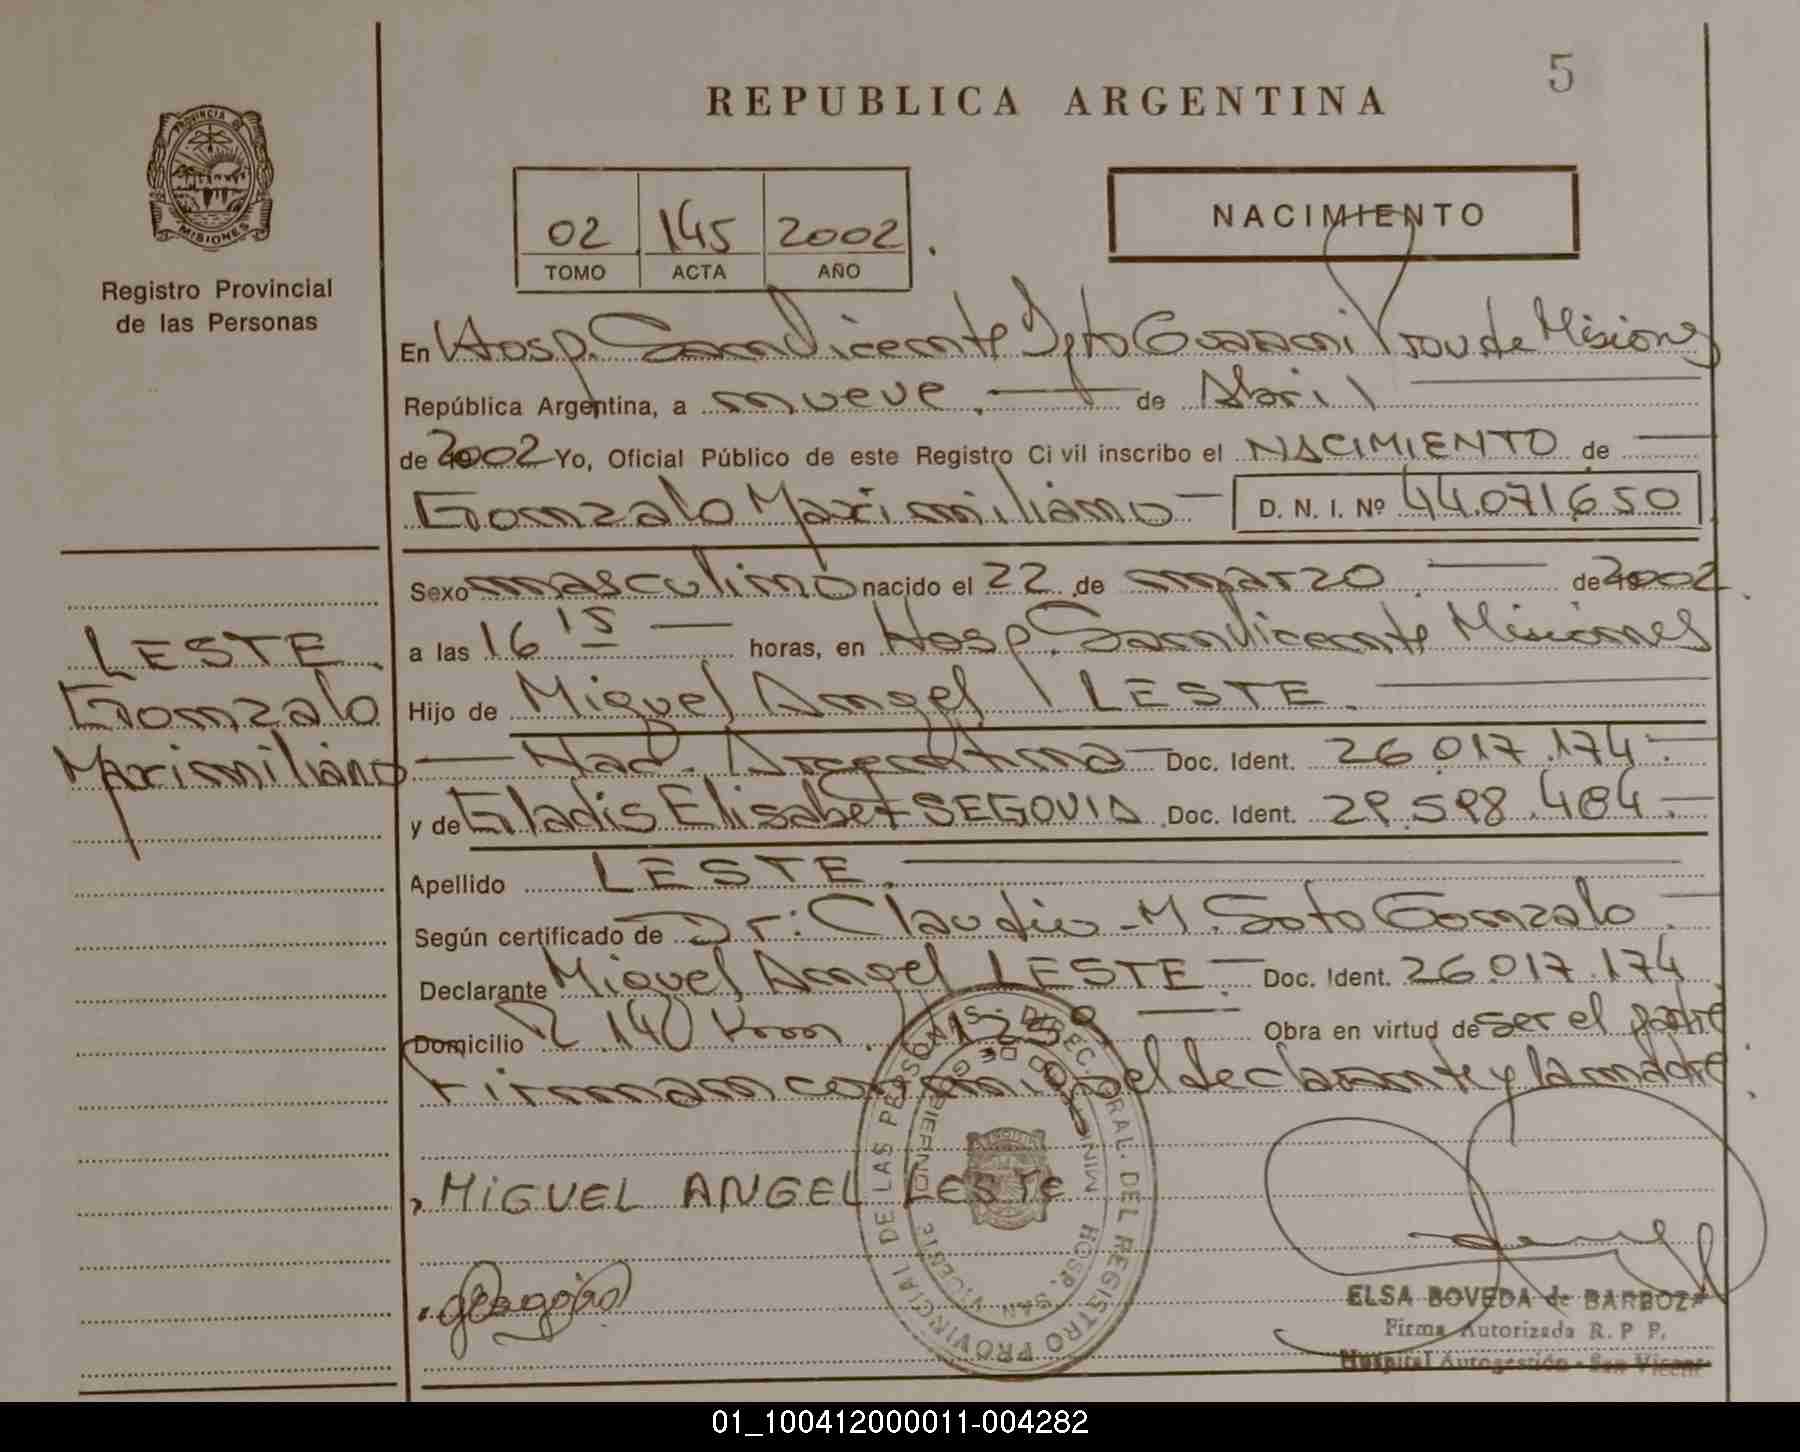 5
REPUBLICA ARGENTINA
PROVINCIA DE
MISIONES
Registro Provincial
de las Personas
02 145 2002
TOMO ACTA AÑO
NACIMIENTO
En Hosp. San Vicente Dpto Guarani Prov de Misiones
República Argentina, a nueve. de Abril
de 2002 Yo, Oficial Público de este Registro Civil inscribo el NACIMIENTO de
Gonzalo Maximiliano D. N. I. Nº 44.071.650
Sexo masculino nacido el 22 de marzo de 2002
a las 16 15 horas, en Hosp. San Vicente Misiones
LESTE
Gonzalo
Maximiliano
Hijo de Miguel Angel LESTE.
Nac. Argentina Doc. Ident. 26.017.174
y de Gladis Elisabet SEGOVIA Doc. Ident. 29.598.484
Apellido LESTE.
Según certificado de Dr: Claudio M. Soto Gonzalo
Declarante Miguel Angel LESTE Doc. Ident. 26.017.174
Domicilio R 14 Km Obra en virtud de ser el padre
Firman conmigo el declarante y la madre
MIGUEL ANGEL LESTE
DIREC. GRAL. DEL REGISTRO PROVINCIAL DE LAS PERSONAS
HOSP. SAN VICENTE
ELSA BOVEDA de BARBOZA
Firma Autorizada R. P P.
Hospital Autogestión - San Vicent
01_100412000011-004282